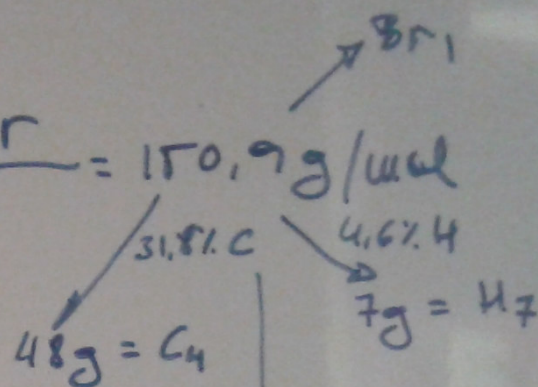 Br₁
r = 150,9 g/mol
31,8% C
4,6% H
7g = H₇
48g = C₄